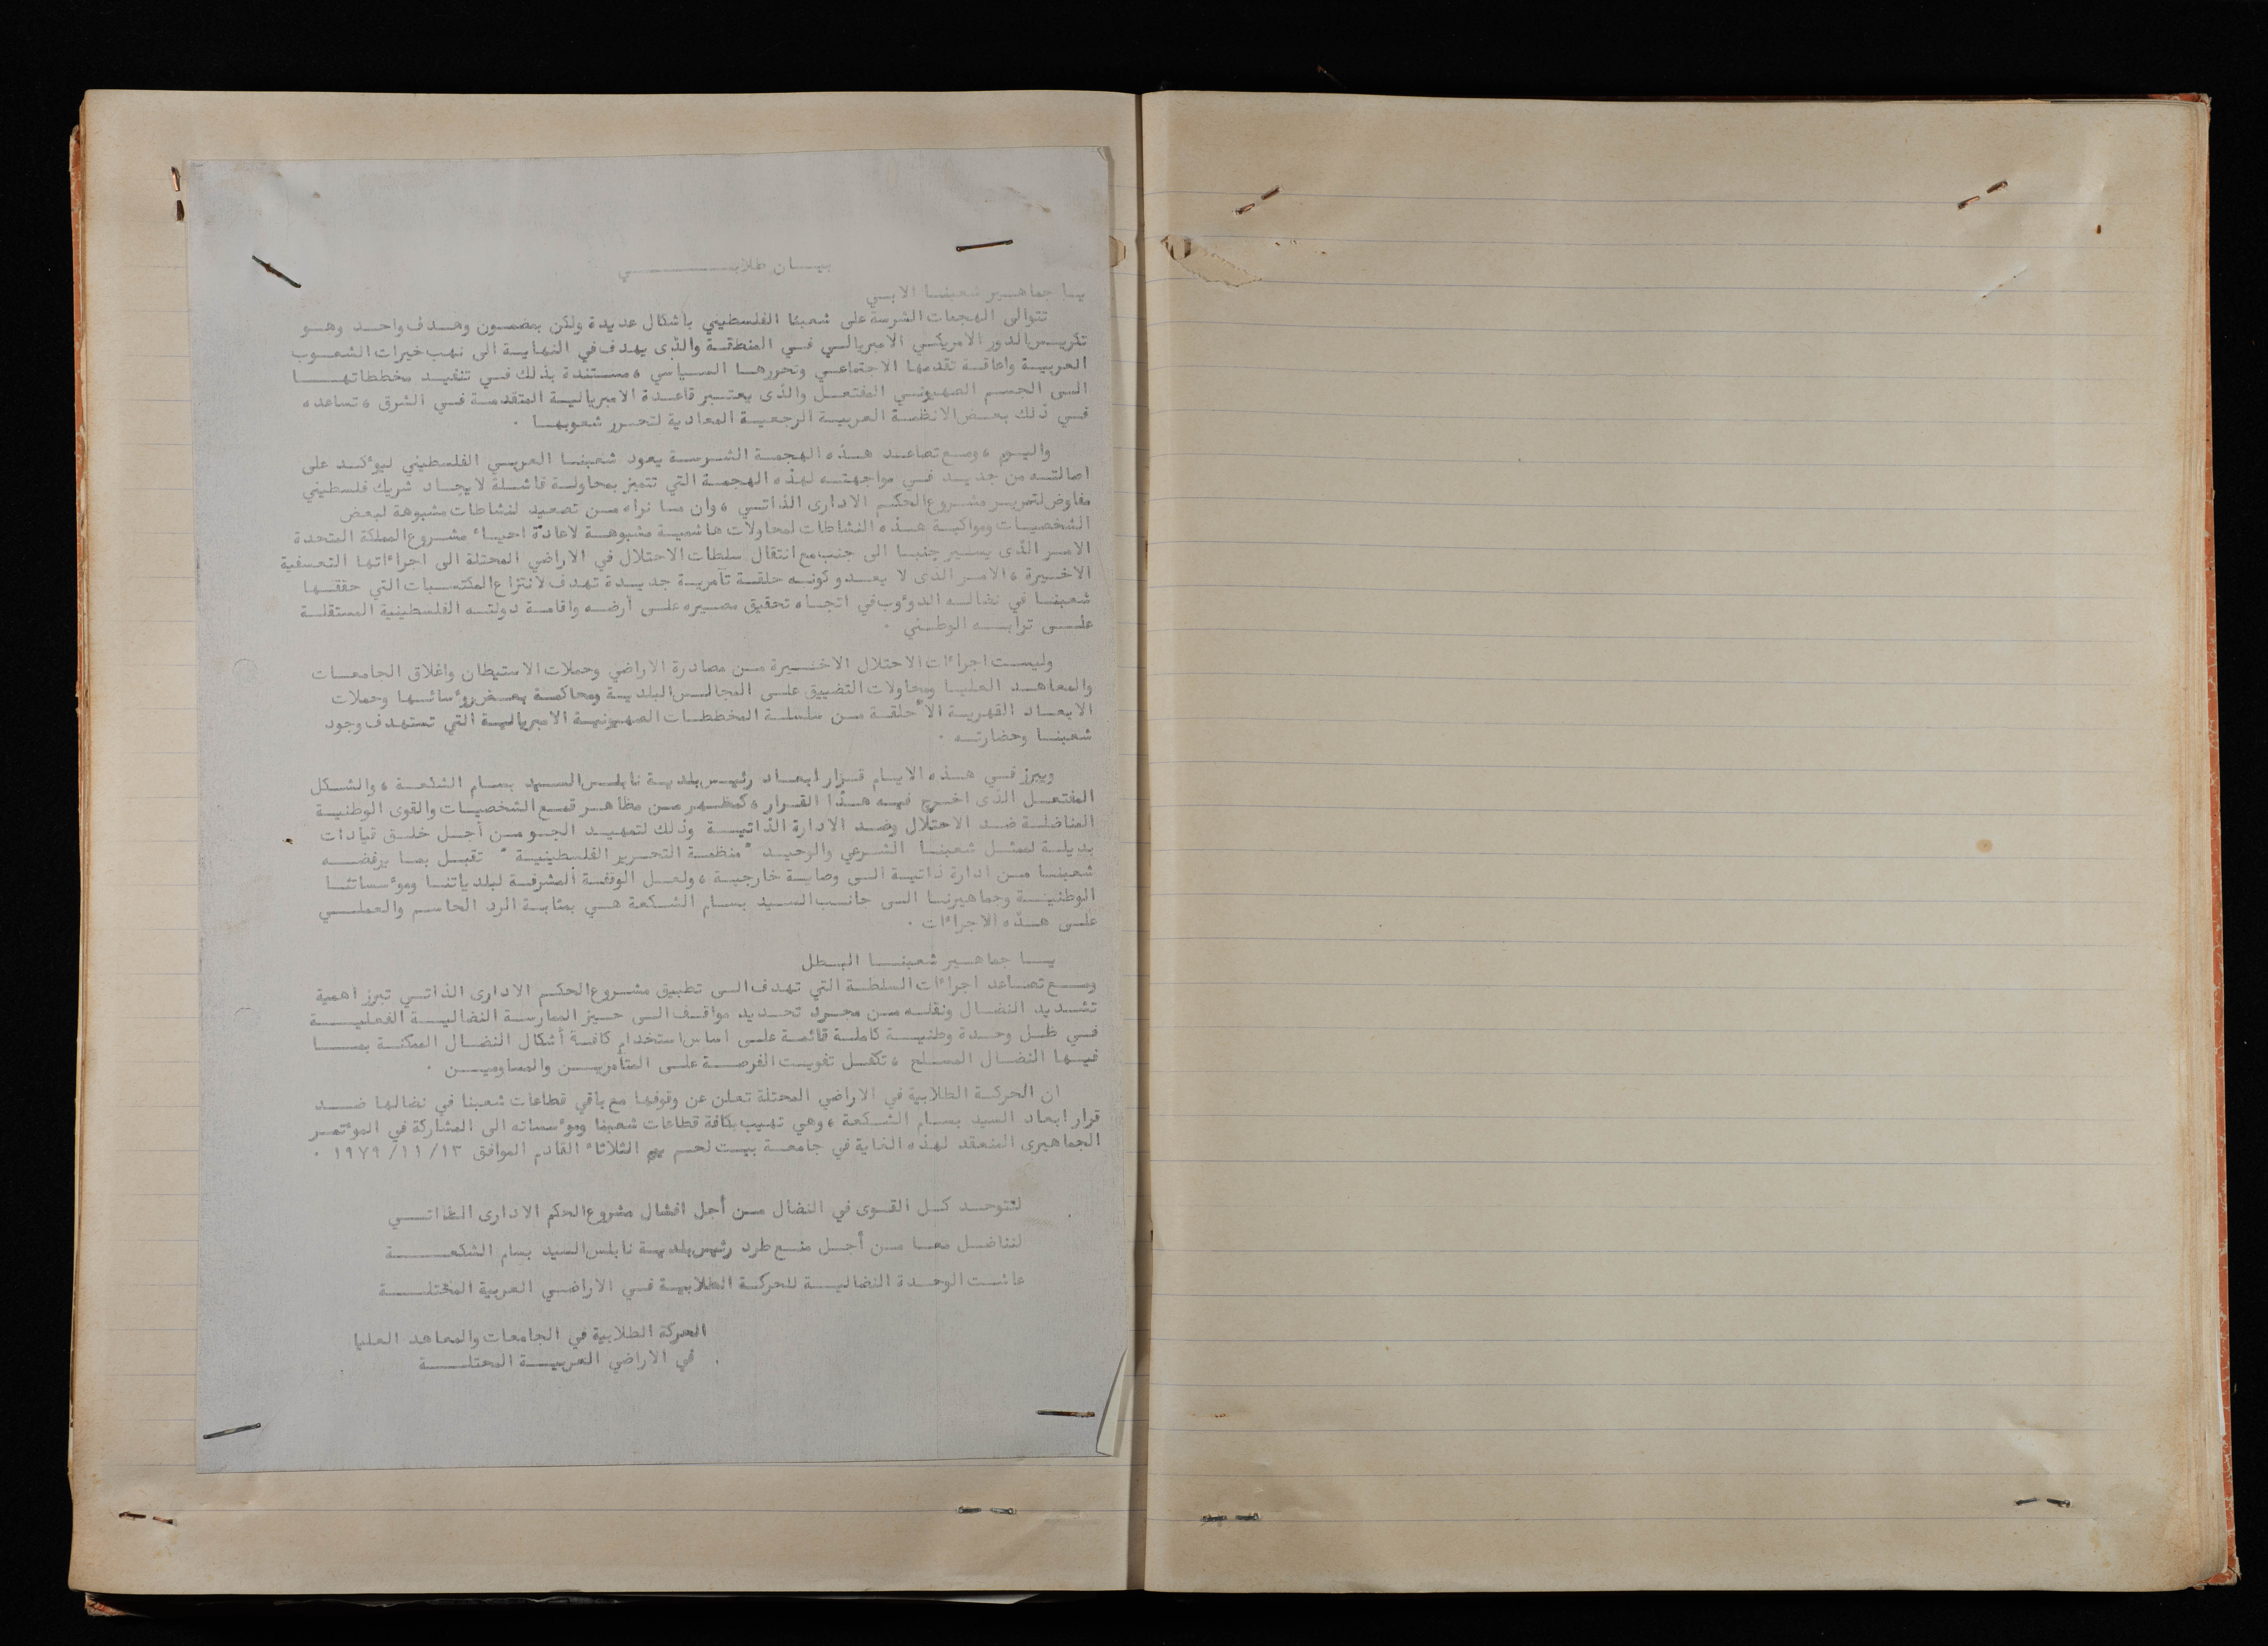 بيان طلابي
يا جماهير شعبنا الابي
تتوالى الهجمات الشرسة على شعبنا الفلسطيني باشكال عديدة ولكن بمضمون وهدف واحد وهو
تكريس الدور الامريكي الامبريالي في المنطقة والذى يهدف في النهاية الى نهب خيرات الشعوب
العربية واعاقة تقدمها الاجتماعي وتحررها السياسي ، مستندة بذلك في تنفيذ مخططاتها
الى الجسم الصهيوني المفتعل والذى يعتبر قاعدة الامبريالية المتقدمة في الشرق ، تساعده
في ذلك بعض الانظمة العربية الرجعية المعادية لتحرر شعوبها .
واليوم ، ومع تصاعد هذه الهجمة الشرسة يعود شعبنا العربي الفلسطيني ليؤكد على
اصالته من جديد في مواجهته لهذه الهجمة التي تتميز بمحاولة فاشلة لايجاد شريك فلسطيني
مفاوض لتمرير مشروع الحكم الادارى الذاتي ، وان ما نراه من تصعيد لنشاطات مشبوهة لبعض
الشخصيات ومواكبة هذه النشاطات لمحاولات هاشمية مشبوهة لاعادة احياء مشروع المملكة المتحدة
الامر الذى يسير جنبا الى جنب مع انتقال سلطات الاحتلال في الاراضي المحتلة الى اجراءاتها التعسفية
الاخيرة ، الامر الذى لا يعدو كونه حلقة تآمرية جديدة تهدف لانتزاع المكتسبات التي حققها
شعبنا في نضاله الدؤوب في اتجاه تحقيق مصيره على أرضه واقامة دولته الفلسطينية المستقلة
على ترابه الوطني .
وليست اجراءات الاحتلال الاخيرة من مصادرة الاراضي وحملات الاستيطان واغلاق الجامعات
والمعاهد العليا ومحاولات التضييق على المجالس البلدية ومحاكمة بعض رؤسائها وحملات
الابعاد القهرية الا حلقة من سلسلة المخططات الصهيونية الامبريالية التي تستهدف وجود
شعبنا وحضارته .
ويبرز في هذه الايام قرار ابعاد رئيس بلدية نابلس السيد بسام الشكعة ، والشكل
المفتعل الذى اخرج فيه هذا القرار ، كمظهر من مظاهر قمع الشخصيات والقوى الوطنية
المناضلة ضد الاحتلال وضد الادارة الذاتية وذلك لتمهيد الجو من أجل خلق قيادات
بديلة لممثل شعبنا الشرعي والوحيد " منظمة التحرير الفلسطينية " تقبل بما يرفضه
شعبنا من ادارة ذاتية الى وصاية خارجية ، ولعل الوقفة المشرفة لبلدياتنا ومؤسساتنا
الوطنية وجماهيرنا الى جانب السيد بسام الشكعة هي بمثابة الرد الحاسم والعملي
على هذه الاجراءات .
يا جماهير شعبنا البطل
ومع تصاعد اجراءات السلطة التي تهدف الى تطبيق مشروع الحكم الادارى الذاتي تبرز اهمية
تشديد النضال ونقله من مجرد تحديد مواقف الى حيز الممارسة النضالية الفعلية
في ظل وحدة وطنية كاملة قائمة على اساس استخدام كافة أشكال النضال الممكنة بما
فيها النضال المسلح ، تكفل تفويت الفرصة على المتآمرين والمساومين .
ان الحركة الطلابية في الاراضي المحتلة تعلن عن وقوفها مع باقي قطاعات شعبنا في نضالها ضد
قرار ابعاد السيد بسام الشكعة ، وهي تهيب بكافة قطاعات شعبنا ومؤسساته الى المشاركة في المؤتمر
الجماهيرى المنعقد لهذه الغاية في جامعة بيت لحم يوم الثلاثاء القادم الموافق ١٣/ ١١/ ١٩٧٩ .
لتتوحد كل القوى في النضال من أجل افشال مشروع الحكم الادارى الذاتي
لنناضل معا من أجل منع طرد رئيس بلدية نابلس السيد بسام الشكعة
عاشت الوحدة النضالية للحركة الطلابية في الاراضي العربية المحتلة
الحركة الطلابية في الجامعات والمعاهد العليا
في الاراضي العربية المحتلة